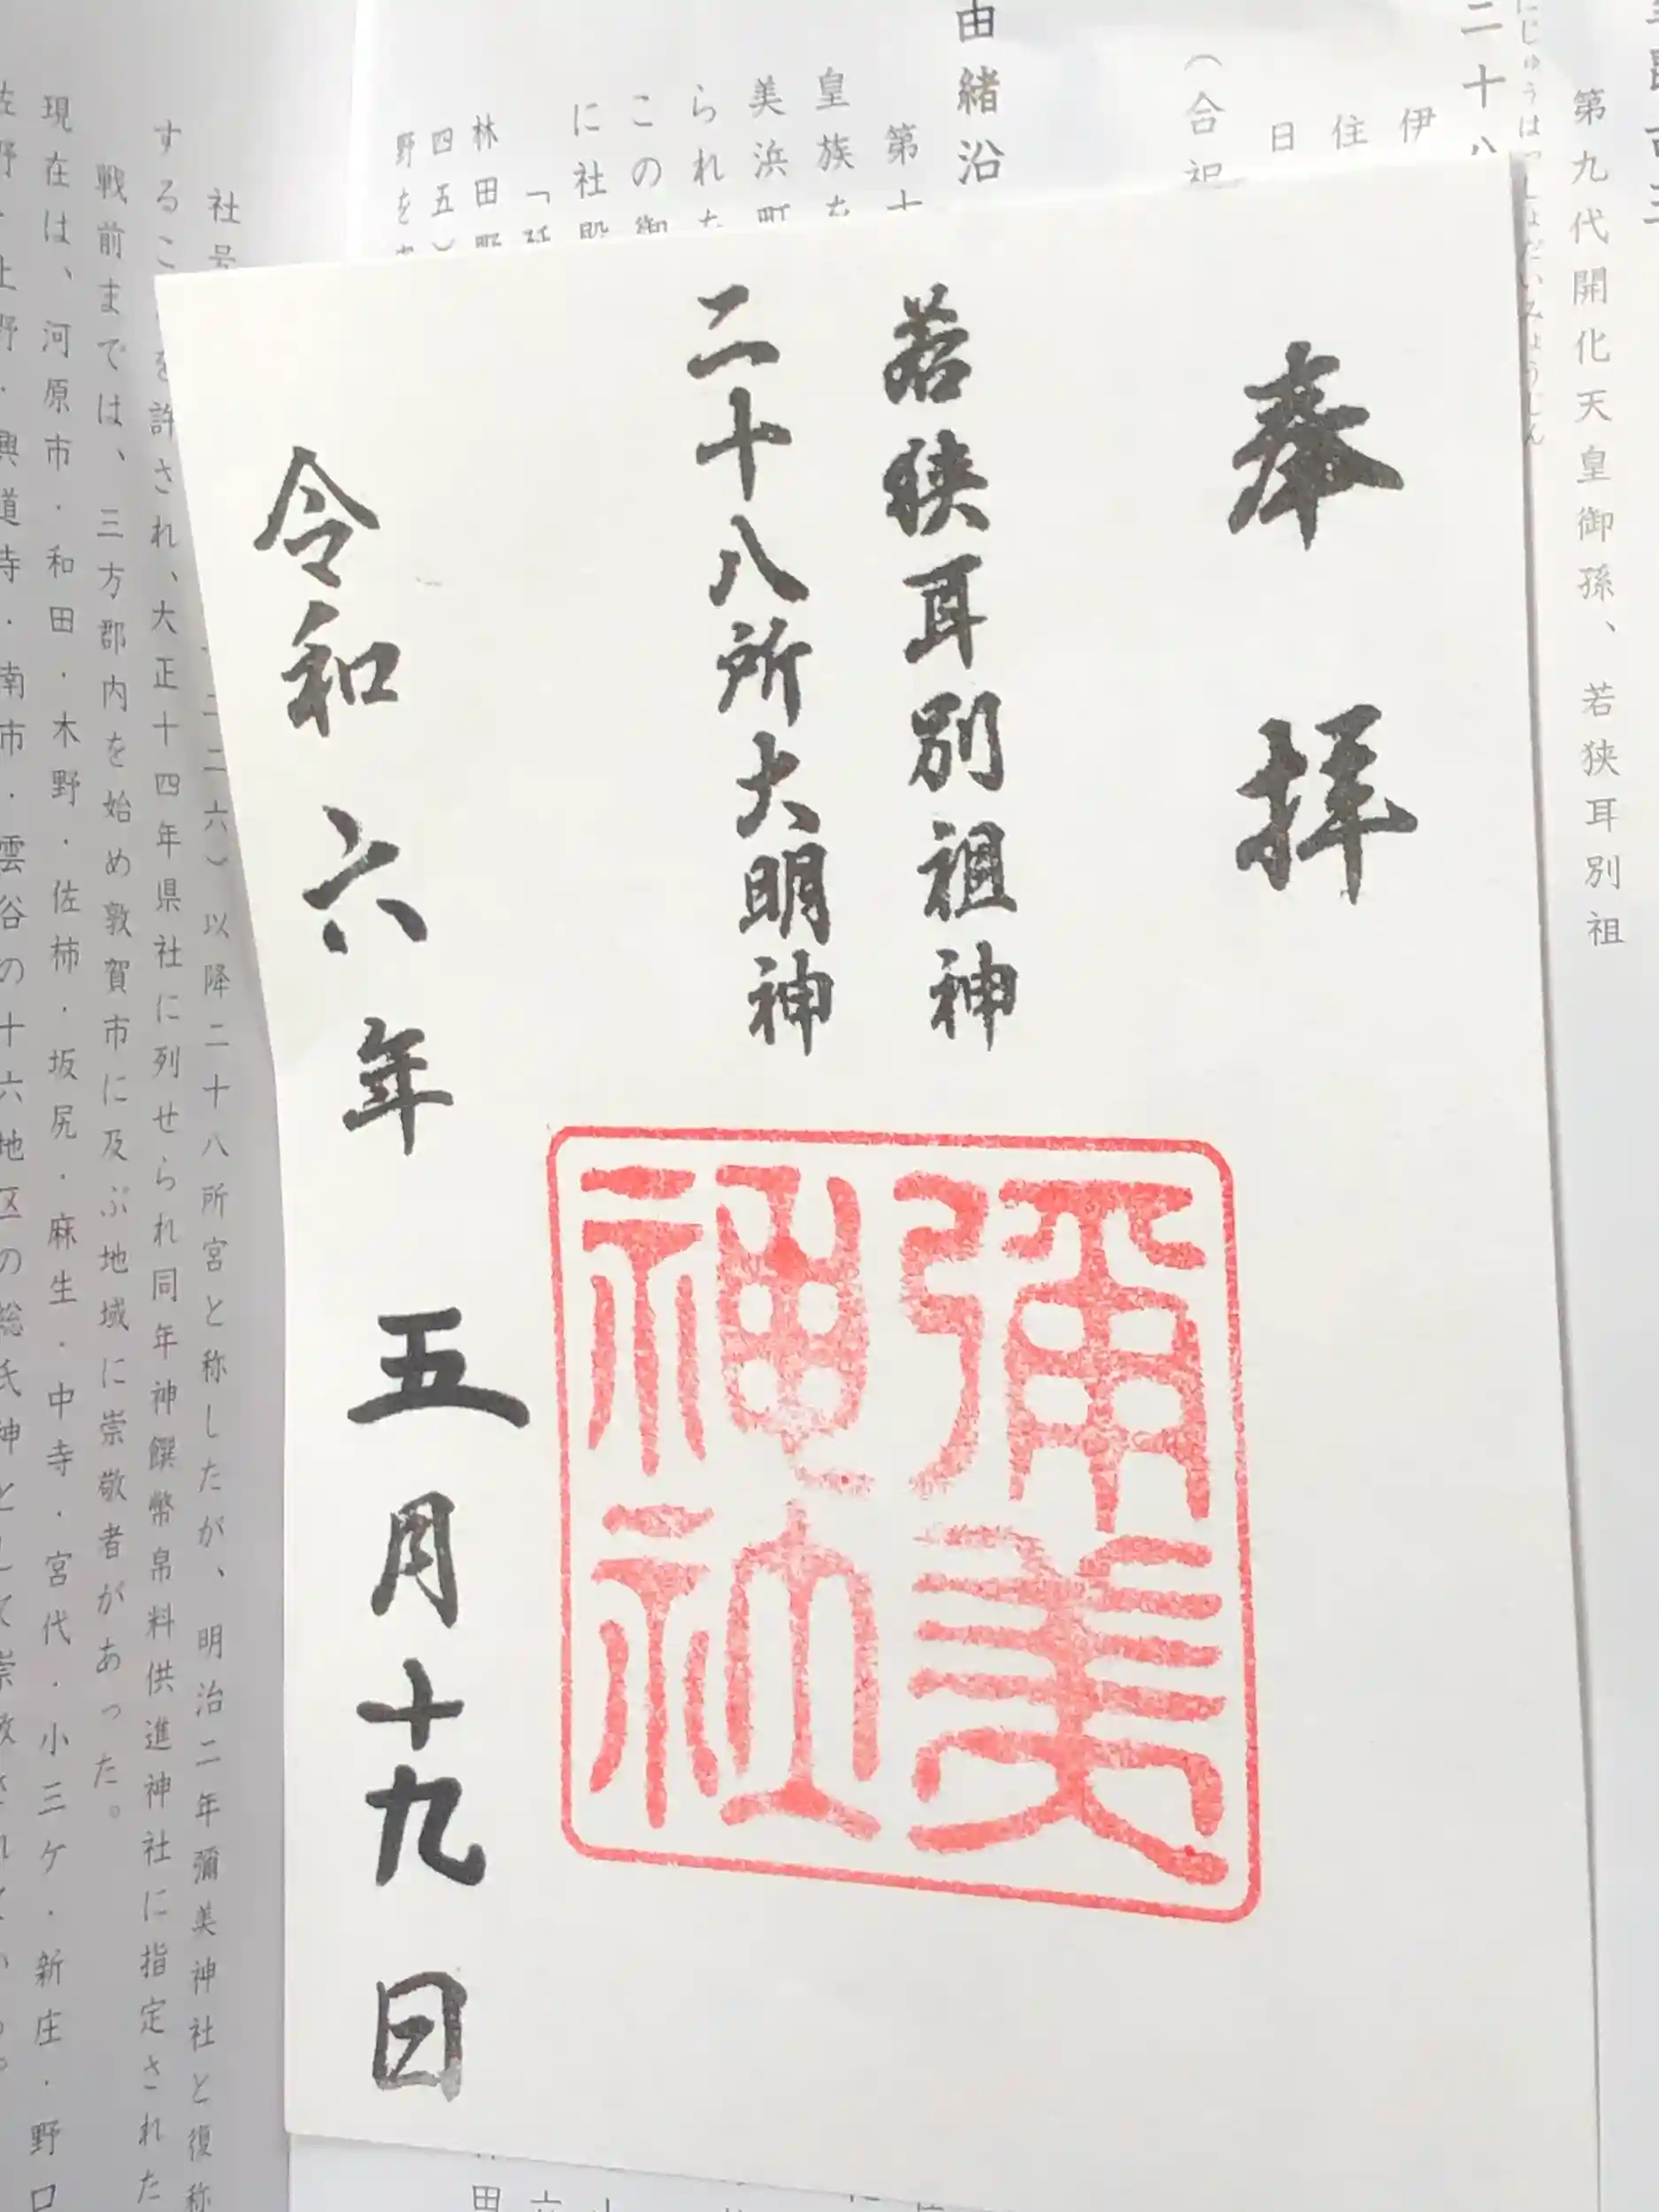 第九代開化天皇御孫、若狭耳別祖
にじゅうはっしょだいみょうじん
二十八
伊
住
日
（合祀
由緒沿
第十
皇族を
美浜町
られた
この御
に社殿
「延
林田野
四五）
野を
奉拝
若狭耳別祖神
二十八所大明神
令和六年五月十九日
彌美
神社
社号
二二六）以降二十八所宮と称したが、明治二年彌美神社と復称
することを許され、大正十四年県社に列せられ同年神饌幣帛料供進神社に指定された
戦前までは、三方郡内を始め敦賀市に及ぶ地域に崇敬者があった。
現在は、河原市・和田・木野・佐柿・坂尻・麻生・中寺・宮代・小三ケ・新庄・野口
佐野・上野・興道寺・南市・雲谷の十六地区の総氏神として崇敬されて